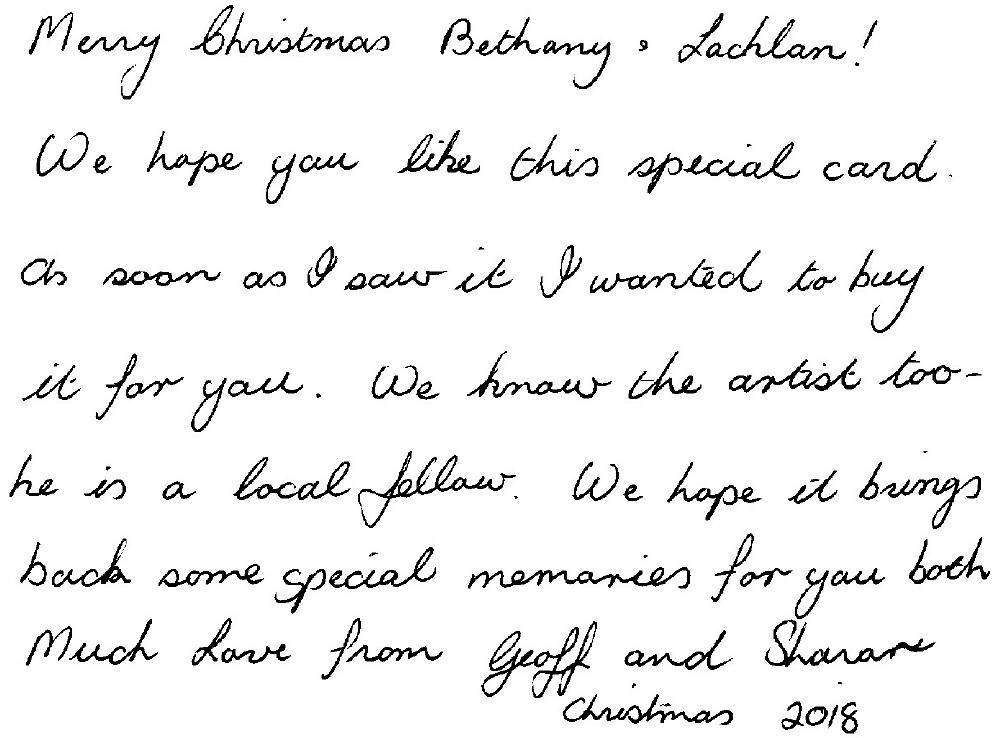 Merry Christmas Bethany & Lachlan!
We hope you like this special card.
As soon as I saw it I wanted to buy
it for you. We know the artist too-
he is a local fellow. We hope it brings
back some special memories for you both
Much Love from Geoff and Sharane
Christmas 2018